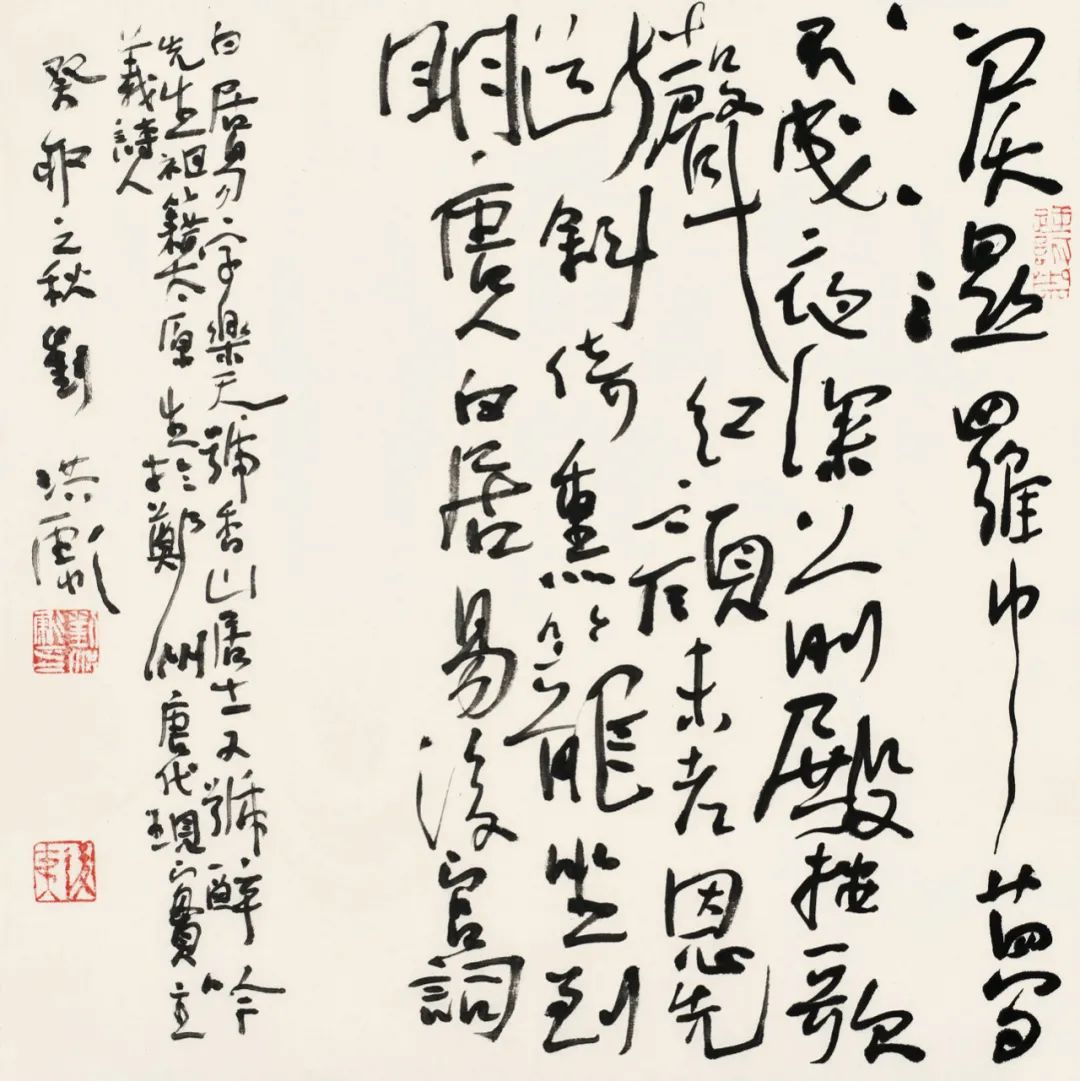 淚濕羅巾夢
不成夜深前殿按歌
聲紅顏未老恩先
斷斜倚熏籠坐到
明唐人白居易後宮詞
白居易字樂天號香山居士又號醉吟
先生祖籍太原生於鄭州唐代現實主
義詩人
癸卯之秋劉洪彪